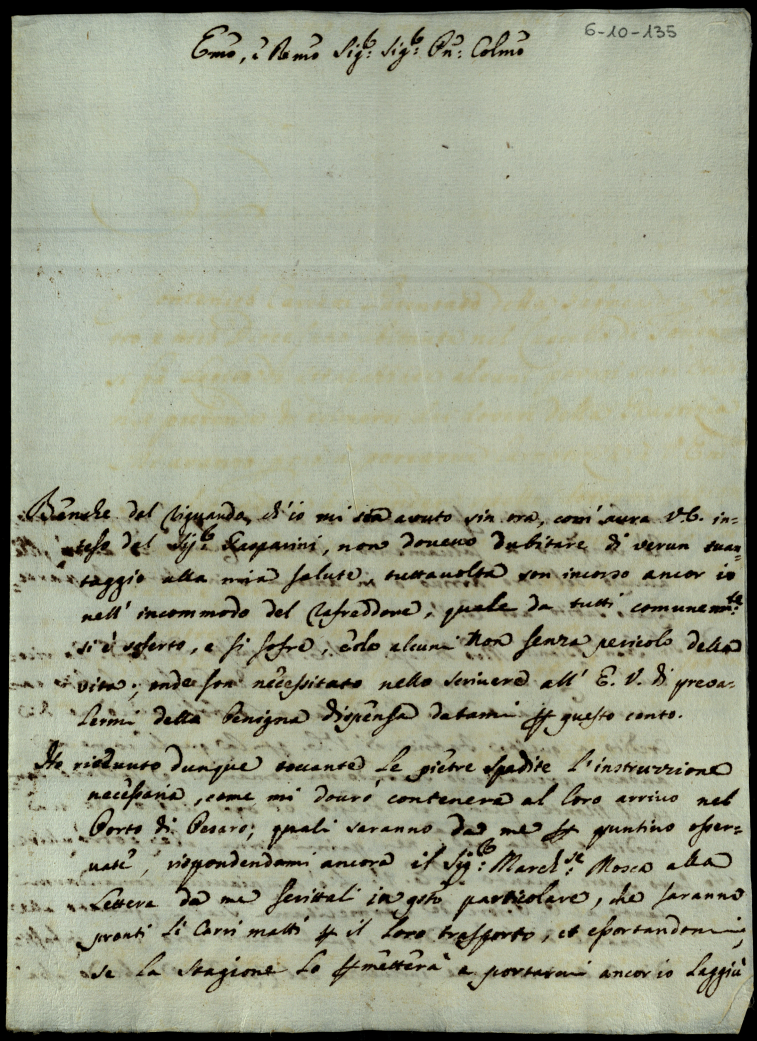 6-10-135
Emo, è Rmo Sig.r Sig.r Pn: Colmo
Benche dal riguardo, ch'io mi sia avuto sin ora, com' avra V.E. in=
teso dal Sig.r Gasparini, non dovevo dubitare di verun svan=
taggio alla mia salute, tuttavolta son incorso ancor io
nell' incommodo del rafreddore, quale da tutti comunem.te
si è soferto, e si sofre, e dolo alcuni non senza pericolo della
vita; onde son necessitato nello scrivere all' E. V. di preva=
lermi della benigna dispensa datami p questo conto.
Ho ricevuto dunque toccante le pietre spedite l'instruzzione
necessaria, come mi dovrò contenere al loro arrivo nel
Porto di Pesaro; quali saranno da me p puntino osser=
vate, rispondendomi ancora il Sig.r March.se Mosca alla
Lettera da me scrittali in qsto particolare, che saranno
pronti li Carri matti p il loro trasporto, et esortandomi,
se la stagione lo pmetterà a portarmi ancor io laggiù